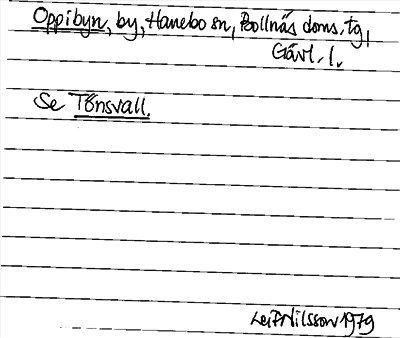 Oppibyn, by, Hanebo sn, Bollnäs doms. tg,
Gävl. l.
Se Tönsvall.
Leif Nilsson 1979